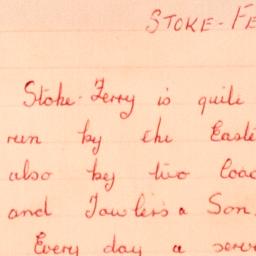 STOKE-FE
Stoke-Ferry is quite
run by the Easte
also by two Coac
and Fowlers & Son.
Every day a serv